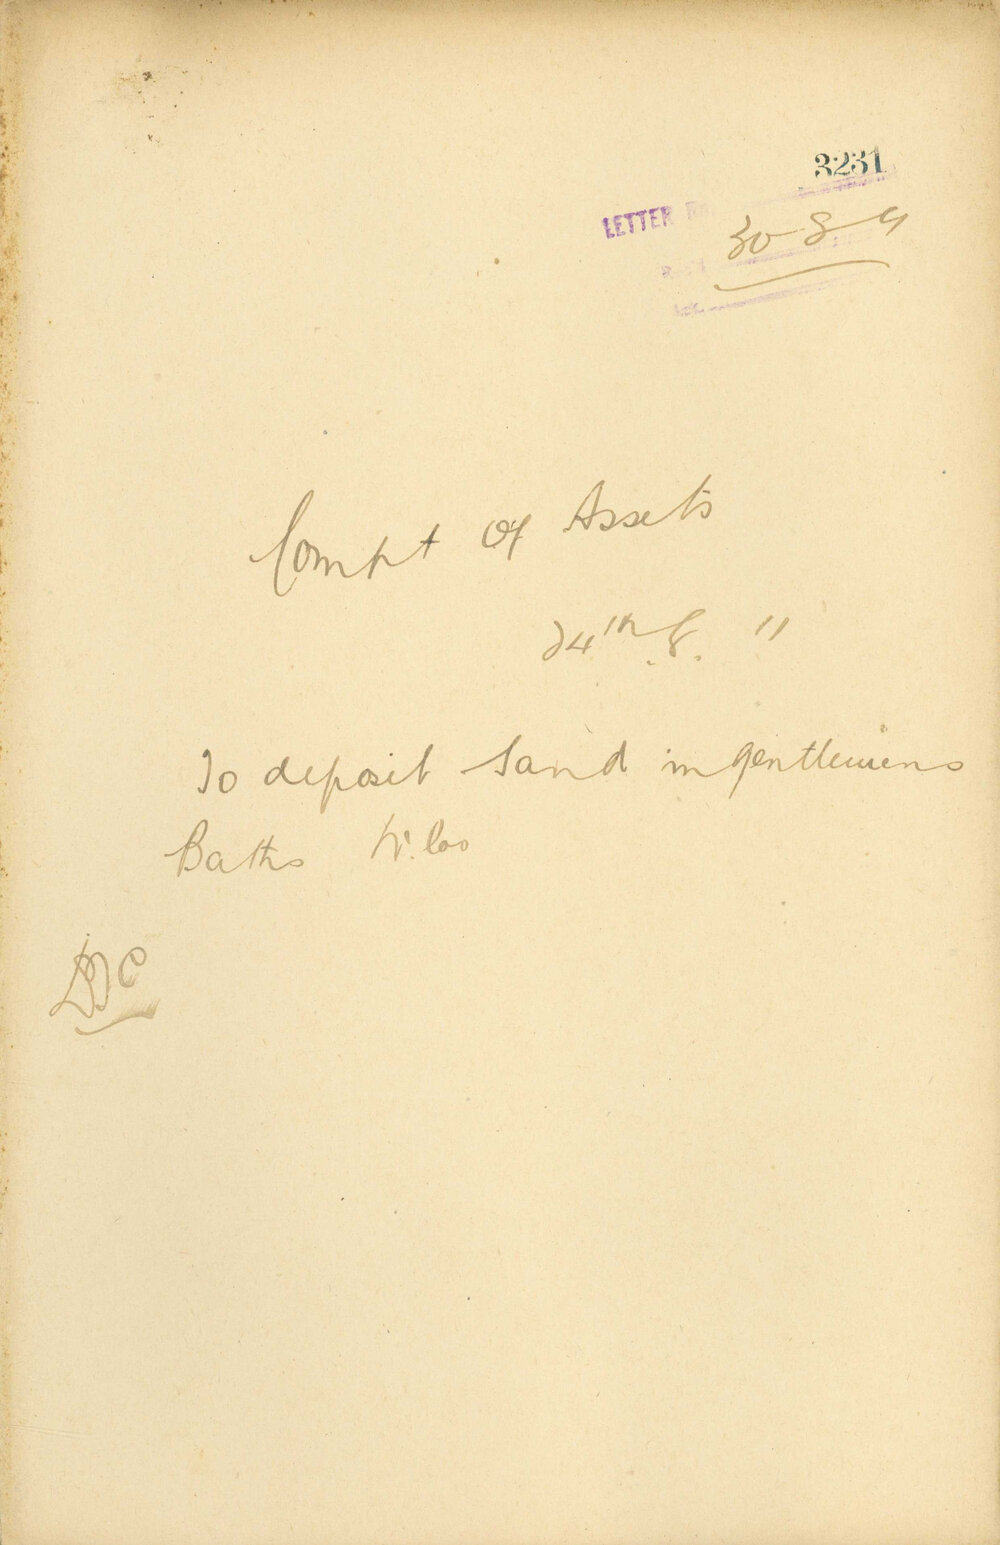 3231
LETTER
30-8-9
Compt Of Assets
24th. 8. "
To deposit Sand in gentlemens
Baths W. Loo